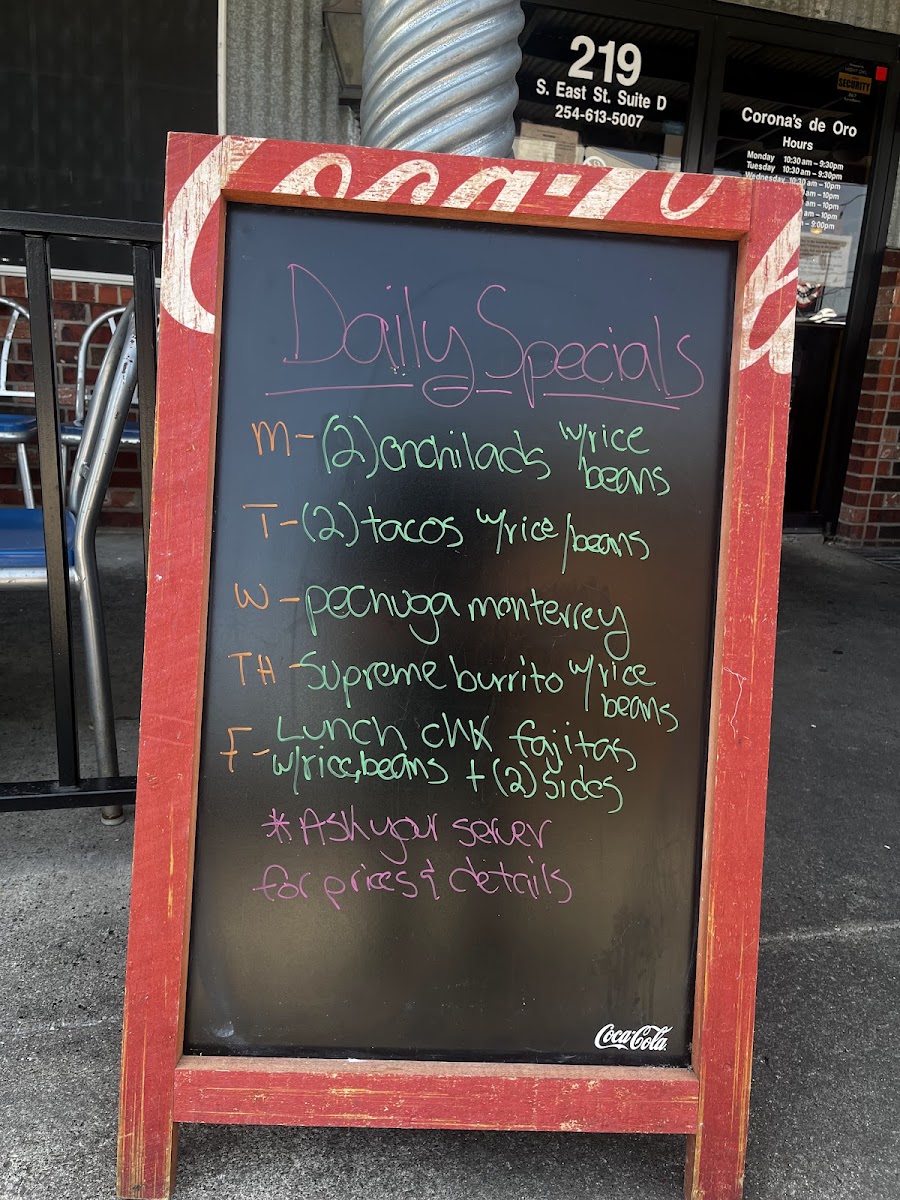 219
S. East St. Suite D
254-613-5007
SECURITY
Corona's de Oro
Hours
Monday 10:30am - 9:30pm
Tuesday 10:30am - 9:30pm
Wednesday 10:30am - 10pm
am - 10pm
am - 10pm
am - 10pm
- 9:00pm
Coca-Co
Daily Specials
M - (2) enchilads w/rice
beans
T - (2) tacos w/rice/beans
W - pechuga monterrey
TH - Supreme burrito w/rice
beans
F - Lunch chk fajitas
w/rice, beans + (2) sides
* Ask your server
for prices & details
Coca-Cola